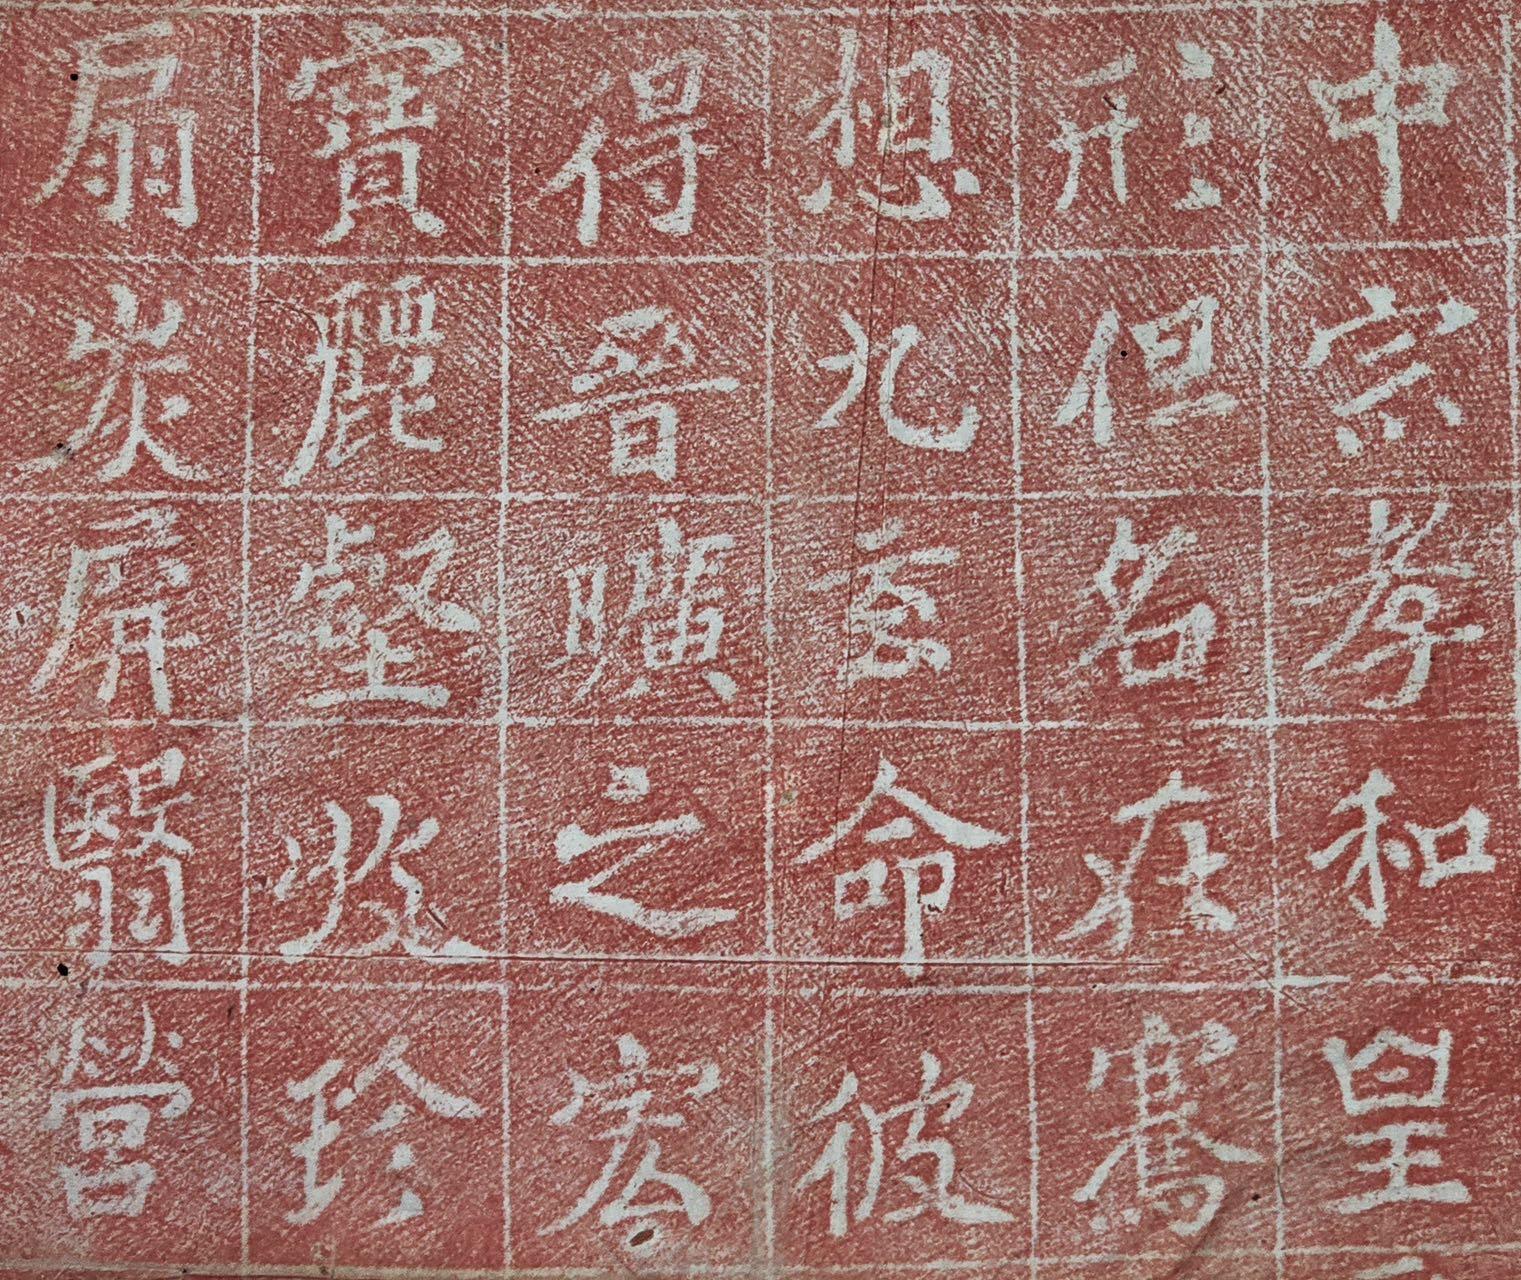 中宗孝和皇
形但名在騫
想九玄命彼
得晉曠之宏
寶麗壑收珍
扇炭屏翳營